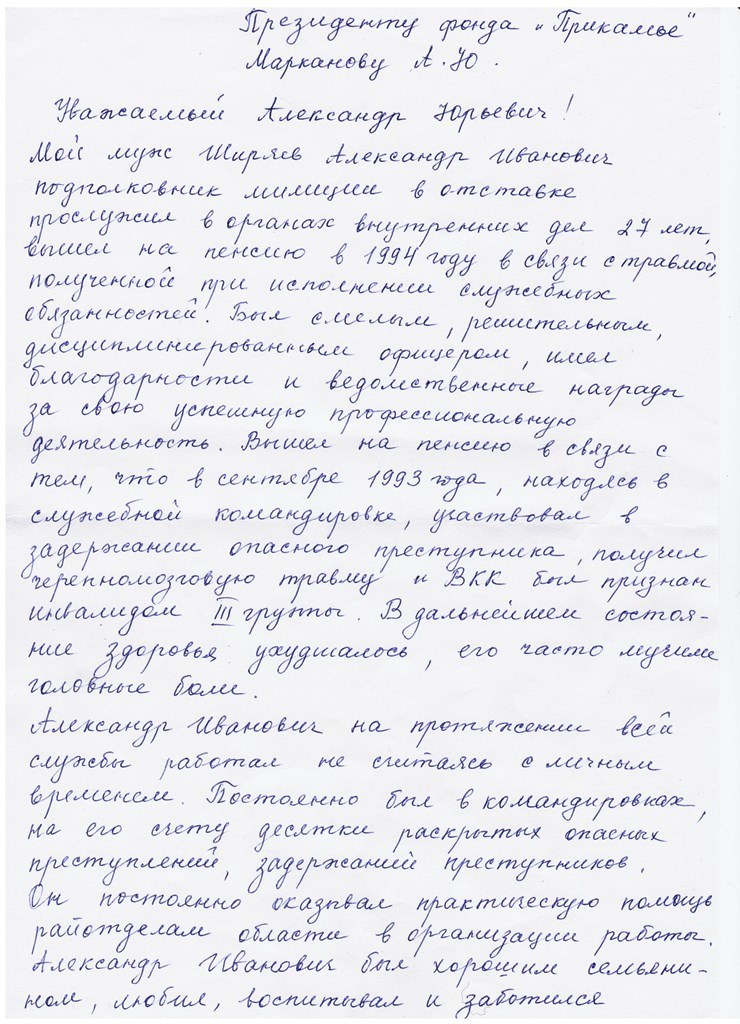 Президенту фонда „Прикамье"
Марканову А.Ю.
Уважаемый Александр Юрьевич!
Мой муж Ширяев Александр Иванович
подполковник милиции в отставке
прослужил в органах внутренних дел 27 лет,
вышел на пенсию в 1994 году в связи с травмой,
полученной при исполнении служебных
обязанностей. Был смелым, решительным,
дисциплинированным офицером, имел
благодарности и ведомственные награды
за свою успешную профессиональную
деятельность. Вышел на пенсию в связи с
тем, что в сентябре 1993 года, находясь в
служебной командировке, участвовал в
задержании опасного преступника, получил
черепномозговую травму и ВКК был признан
инвалидом III группы. В дальнейшем состоя-
ние здоровья ухудшалось, его часто мучили
головные боли.
Александр Иванович на протяжении всей
службы работал не считаясь с личным
временем. Постоянно был в командировках,
на его счету десятки раскрытых опасных
преступлений, задержаний преступников.
Он постоянно оказывал практическую помощь
райотделам области в организации работы.
Александр Иванович был хорошим семьяни-
ном, любил, воспитывал и заботился